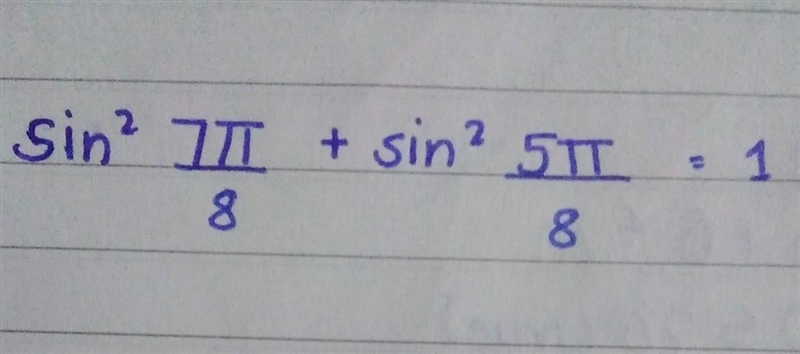 sin² 7π/8 + sin² 5π/8 = 1